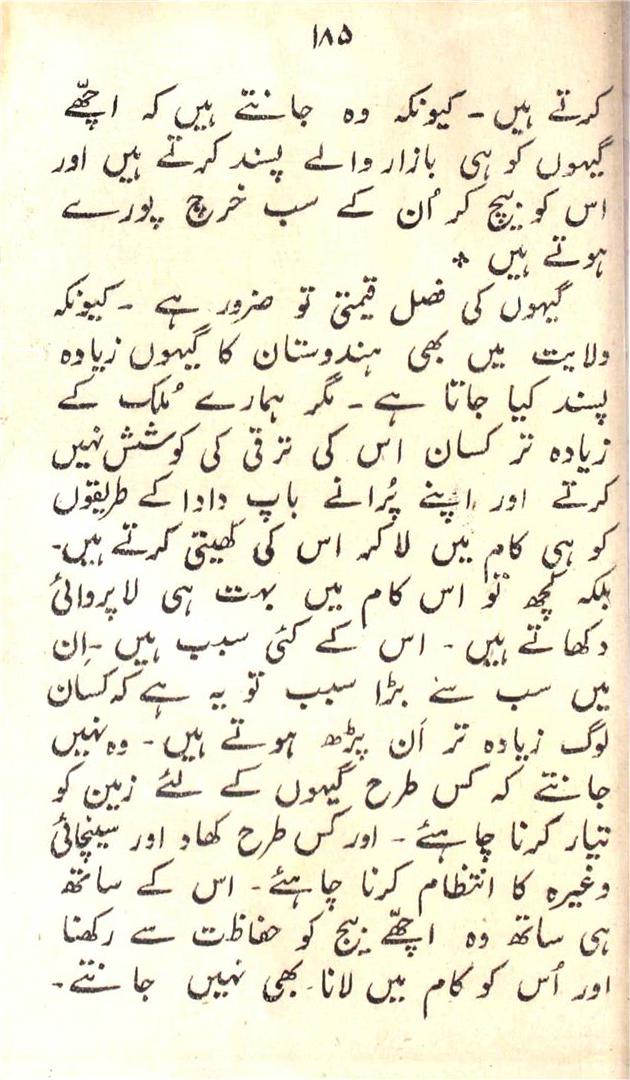 ۱۸۵
کرتے ہیں۔ کیونکہ وہ جانتے ہیں کہ اچھّے
گیہوں کو ہی بازار والے پسند کرتے ہیں اور
اس کو بیچ کر اُن کے سب خرچ پورے
ہوتے ہیں *
گیہوں کی فصل قیمتی تو ضرور ہے ۔ کیونکہ
ولایت میں بھی ہندوستان کا گیہوں زیادہ
پسند کیا جاتا ہے ۔ مگر ہمارے مُلک کے
زیادہ تر کسان اس کی ترقی کی کوشش نہیں
کرتے اور اپنے پُرانے باپ دادا کے طریقوں
کو ہی کام میں لاکر اس کی کھیتی کرتے ہیں۔
بلکہ کچھ تو اس کام میں بہت ہی لاپروائی
دکھاتے ہیں ۔ اس کے کئی سبب ہیں ۔ اِن
میں سب سے بڑا سبب تو یہ ہے کہ کسان
لوگ زیادہ تر اَن پڑھ ہوتے ہیں ۔ وہ نہیں
جانتے کہ کس طرح گیہوں کے لئے زمین کو
تیار کرنا چاہئے ۔ اور کس طرح کھاد اور سینچائی
وغیرہ کا انتظام کرنا چاہئے ۔ اس کے ساتھ
ہی ساتھ وہ اچھّے بیج کو حفاظت سے رکھنا
اور اُس کو کام میں لانا بھی نہیں جانتے۔